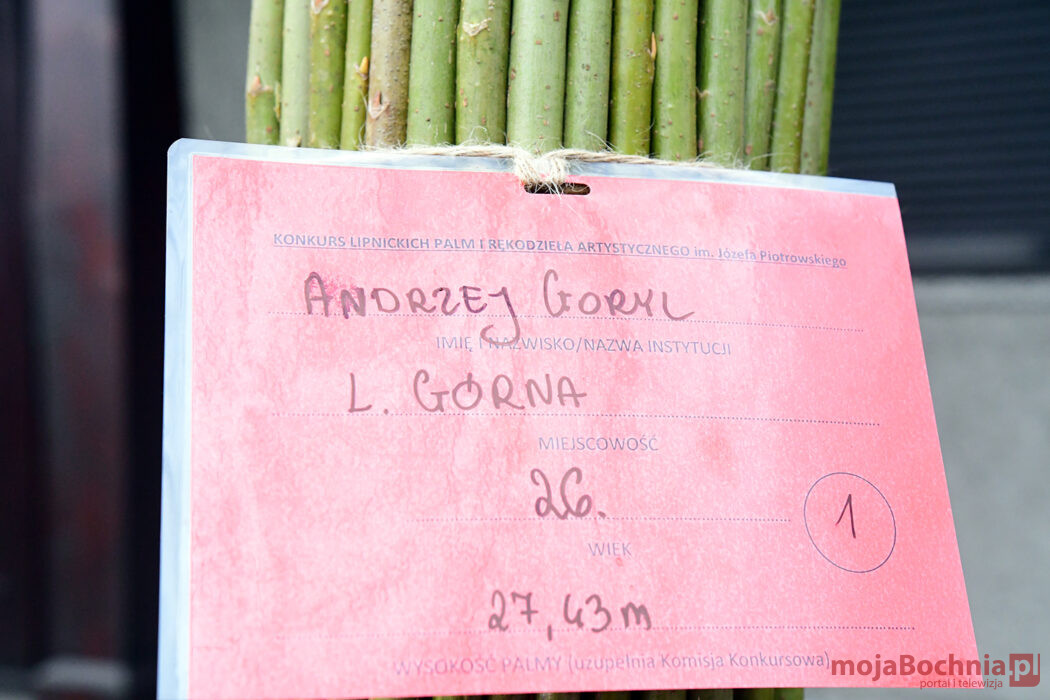 KONKURS LIPNICKICH PALM I RĘKODZIEŁA ARTYSTYCZNEGO im. Józefa Piotrowskiego
ANDRZEJ GORYL
IMIĘ I NAZWISKO/NAZWA INSTYTUCJI
L. GÓRNA
MIEJSCOWOŚĆ
26.
1
WIEK
27,43 m
WYSOKOŚĆ PALMY (uzupełnia Komisja Konkursowa)
mojaBochnia.pl
portal i telewizja